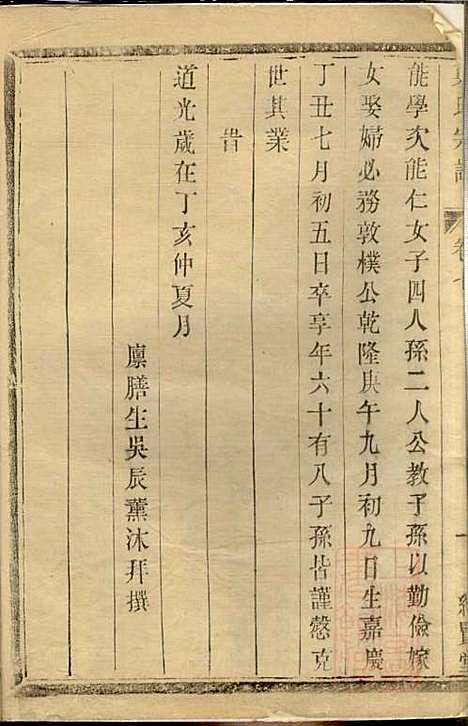 吳氏宗譜 卷十
能學次能仁女子四人孫二人公教子孫以勤儉嫁
女娶婦必務敦樸公乾隆庚午九月初九日生嘉慶
丁丑七月初五日卒享年六十有八子孫皆謹慤克
世其業
旹
道光歲在丁亥仲夏月
廪膳生吳辰薰沐拜撰